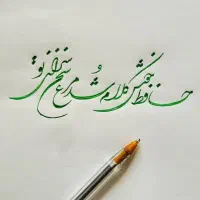 حافظ خوش کلام شد مرغ سخن سرای تو